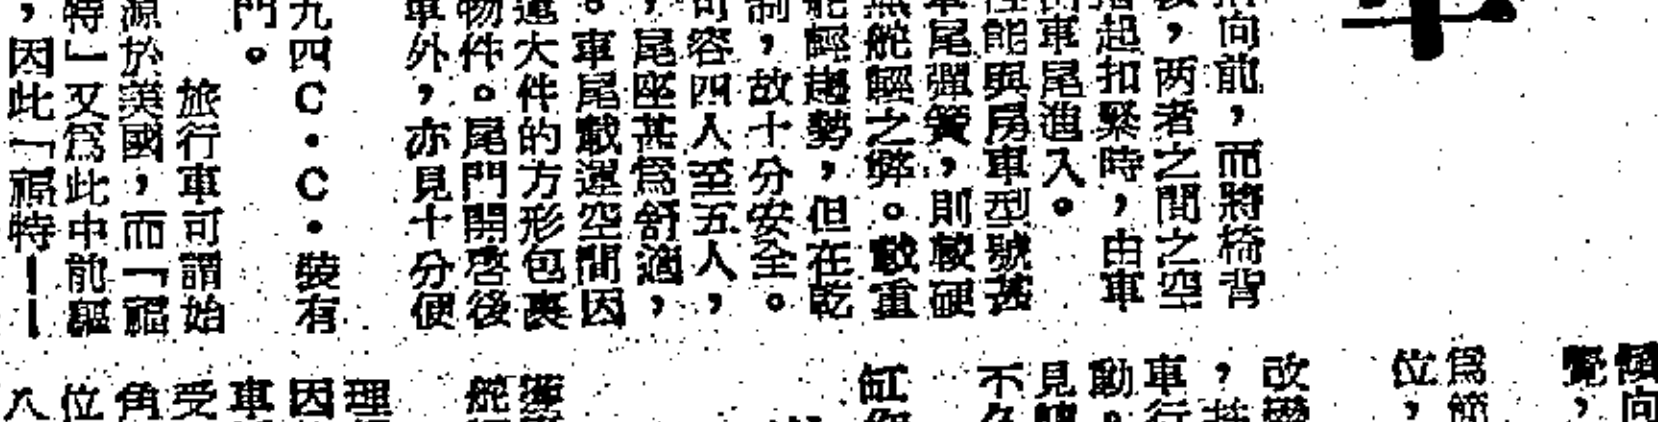 向前，而將椅背
，两者之間之空
起扣緊時，由車
車尾進入。
性能與房車型號甚
車尾彈簧，則較硬
無舵輕之弊。載重
能輕趨勢，但在乾
制，故十分安全。
可容四人至五人，
，尾座甚爲舒適，
。車尾載運空間因
運大件的方形包裹
物件。尾門開啓後
車外，亦見十分便
九四C．C．裝有
門。
旅行車可謂始
源於美國，而「福
特」又爲此中前驅
，因此「福特——
傾向
覺，
爲節
位，
改
，
車行
動。
見
不
缸
舵
理
因
車
受
角
位
八